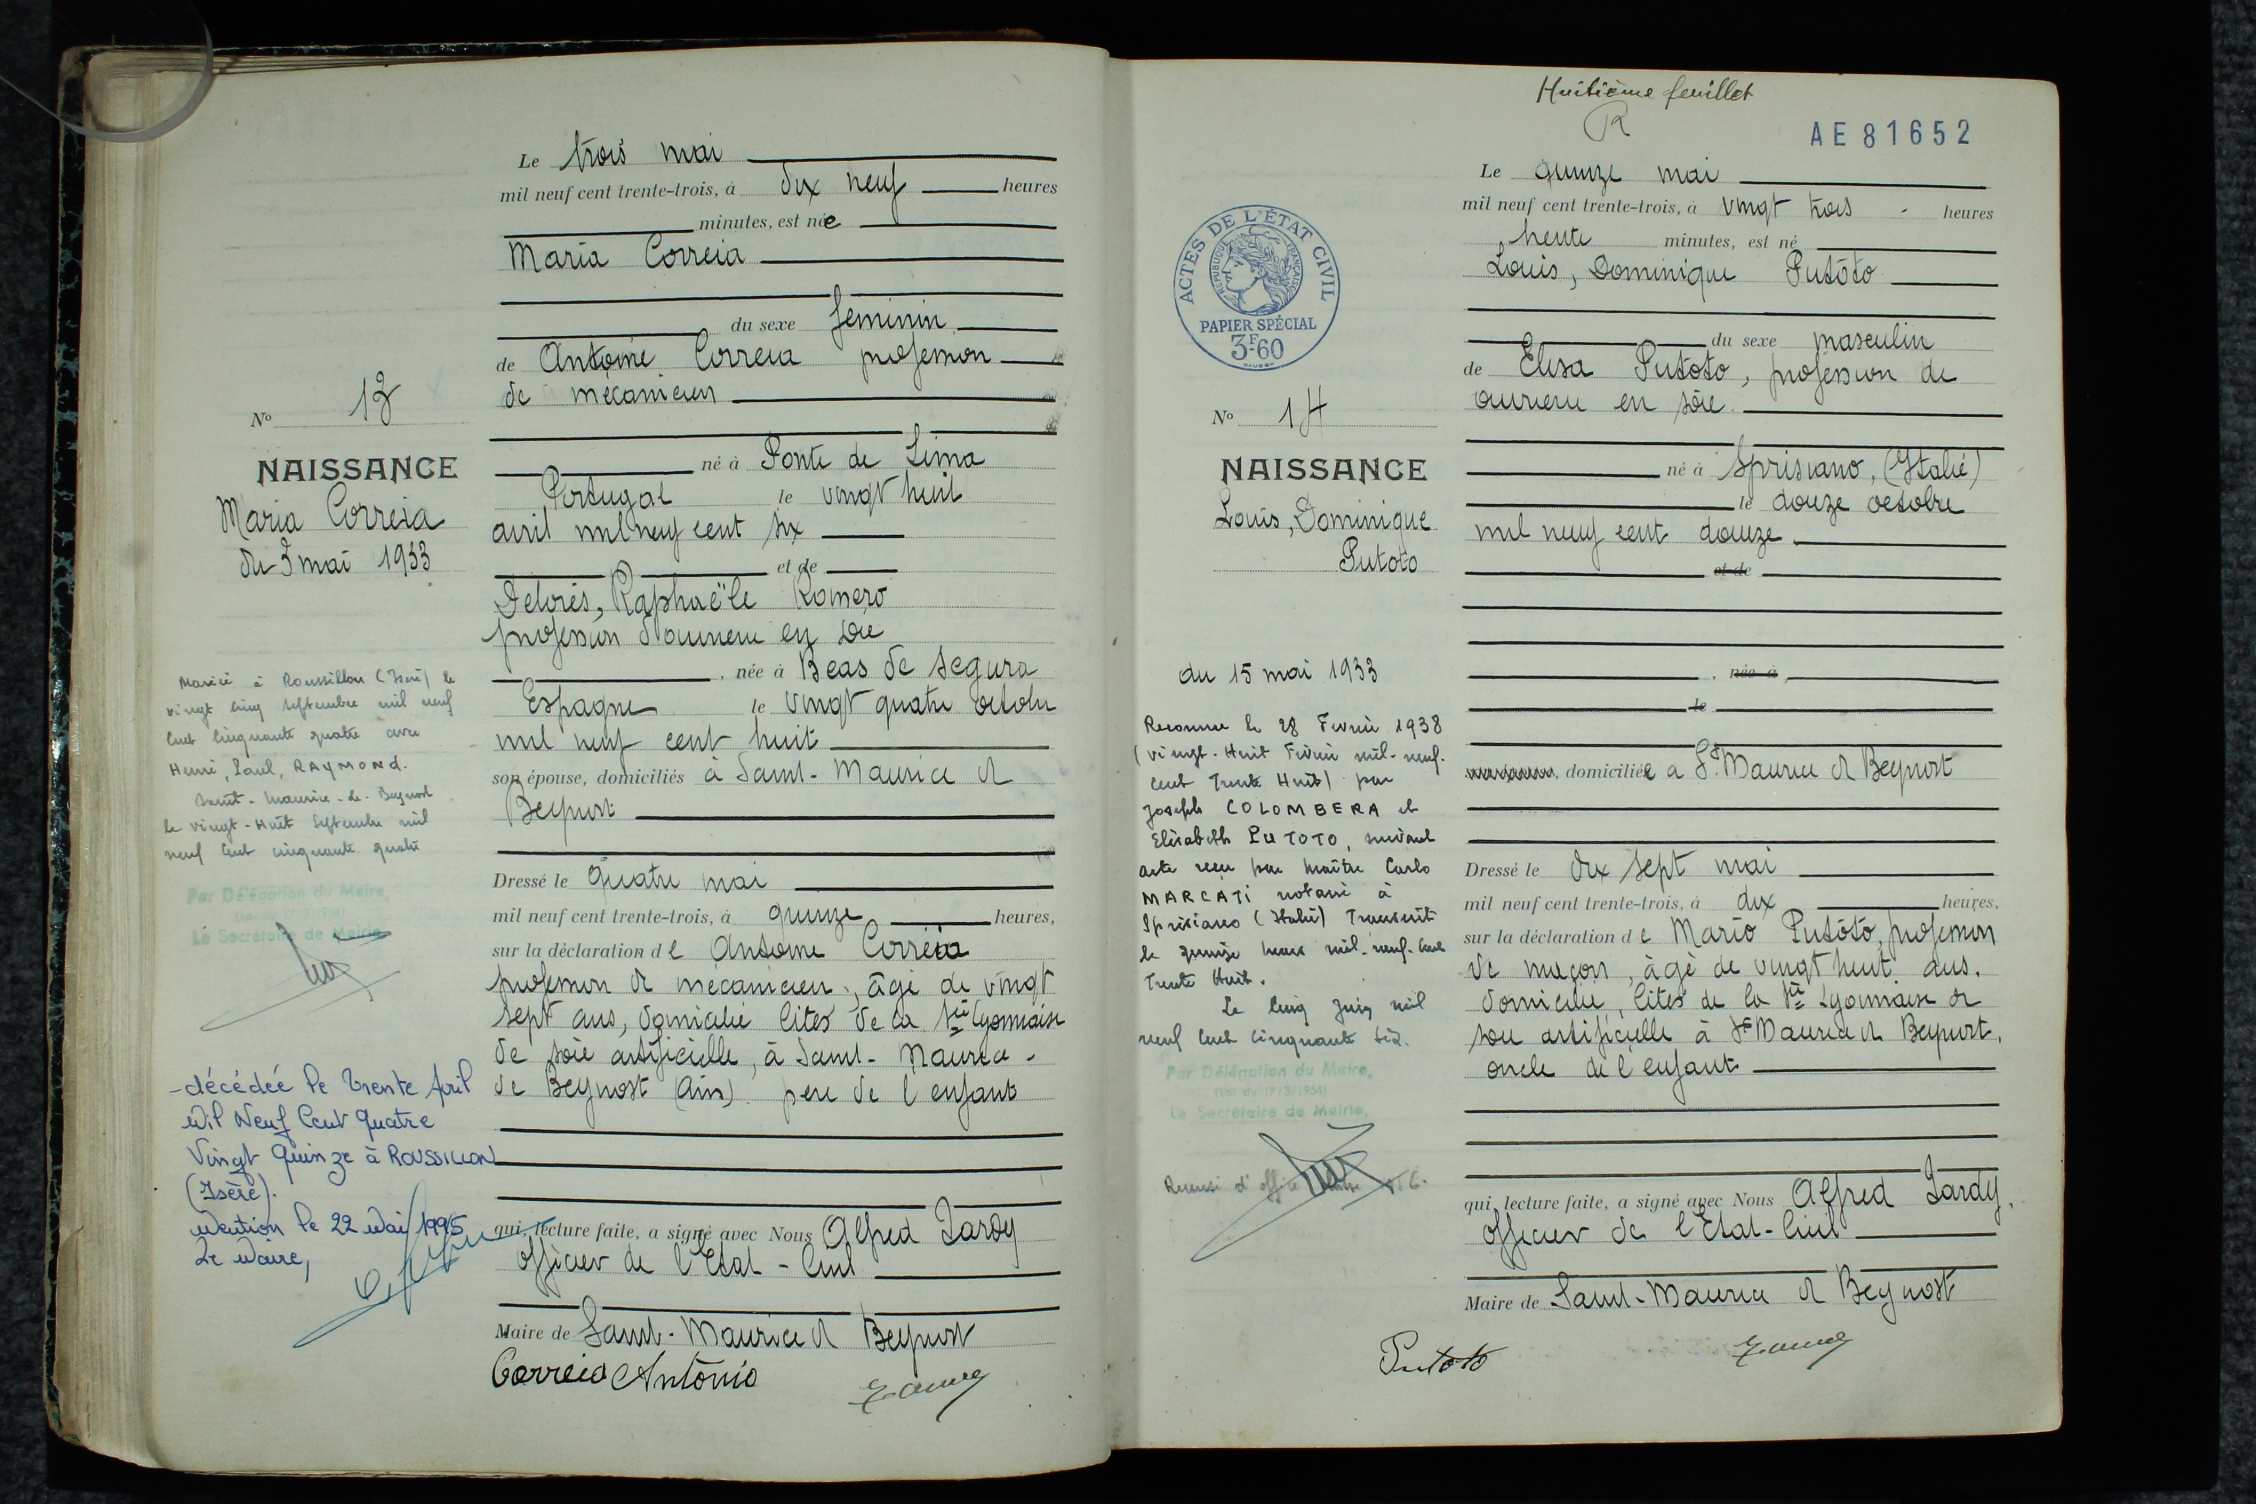 Le trois mai
mil neuf cent trente-trois, à dix neuf heures
minutes, est née
Maria Correia
du sexe féminin
de Antoine Correia profession
de mécanicien
né à Ponte de Lima
Portugal le vingt huit
avril mil neuf cent six
et de
Delorès, Raphaële Romero
profession d'ouvrière en soie
, née à Beas de Segura
Espagne le vingt quatre octobre
mil neuf cent huit
son épouse, domiciliés à Saint-Maurice de
Beynost
Dressé le quatre mai
mil neuf cent trente-trois, à quinze heures,
sur la déclaration de Antoine Correia
profession de mécanicien, âgé de vingt
sept ans, domicilié Cités de la Sté Lyonnaise
de soie artificielle, à Saint-Maurice-
de Beynost (Ain) père de l'enfant
qui, lecture faite, a signé avec Nous Alfred Jardy
officier de l'Etat-Civil
Maire de Saint-Maurice de Beynost
Correia António
No 13
NAISSANCE
Maria Correia
du 3 mai 1933
Mariée à Roussillon (Isère) le
vingt cinq septembre mil neuf
cent cinquante quatre avec
Henri, Paul, RAYMOND.
Saint-Maurice-de-Beynost
le vingt-Huit Septembre mil
neuf cent cinquante quatre
Par Délégation du Maire,
Le Secrétaire de Mairie
-décédée le trente Avril
Mil Neuf Cent Quatre
Vingt Quinze à ROUSSILLON
(Isère).
Mention le 22 Mai 1995
Le Maire,
Huitième feuillet
AE 81652
ACTES DE L'ÉTAT CIVIL
REPUBLIQUE FRANÇAISE
PAPIER SPÉCIAL
3F60
No 14
NAISSANCE
Louis, Dominique
Putoto
du 15 mai 1933
Reconnu le 28 Février 1938
(vingt-Huit Février mil-neuf-
cent Trente Huit) par
Joseph COLOMBERA et
Elisabeth PUTOTO, suivant
acte reçu par Maître Carlo
MARCATI notaire à
Spresiano (Italie) Transcrit
le quinze mars mil-neuf-cent
Trente Huit.
Le cinq Juin mil
neuf cent cinquante six.
Par Délégation du Maire,
(loi du 17/3/1954)
Le Secrétaire de Mairie,
Le quinze mai
mil neuf cent trente-trois, à vingt trois heures
trente minutes, est né
Louis, Dominique Putoto
du sexe masculin
de Elisa Putoto, profession de
ouvrière en soie
né à Sprisiano, (Italie)
le douze octobre
mil neuf cent douze
et de
, née à
le
, domiciliée à St Maurice de Beynost
Dressé le dix sept mai
mil neuf cent trente-trois, à dix heures,
sur la déclaration de Mario Putoto, profession
de maçon, âgé de vingt huit ans,
domicilié, Cités de la Sté Lyonnaise de
soie artificielle à St Maurice de Beynost,
oncle de l'enfant
qui, lecture faite, a signé avec Nous Alfred Jardy,
officier de l'Etat-Civil
Maire de Saint-Maurice de Beynost
Putoto